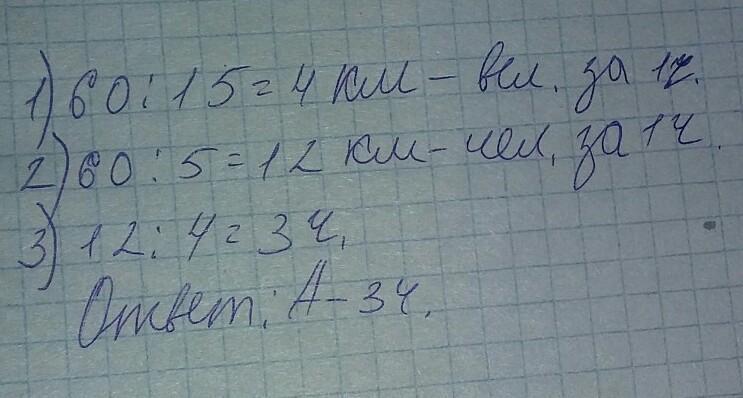 1) 60 : 15 = 4 км – вел. за 1ч.
2) 60 : 5 = 12 км – чел. за 1ч.
3) 12 : 4 = 3 ч.
Ответ: А – 3ч.